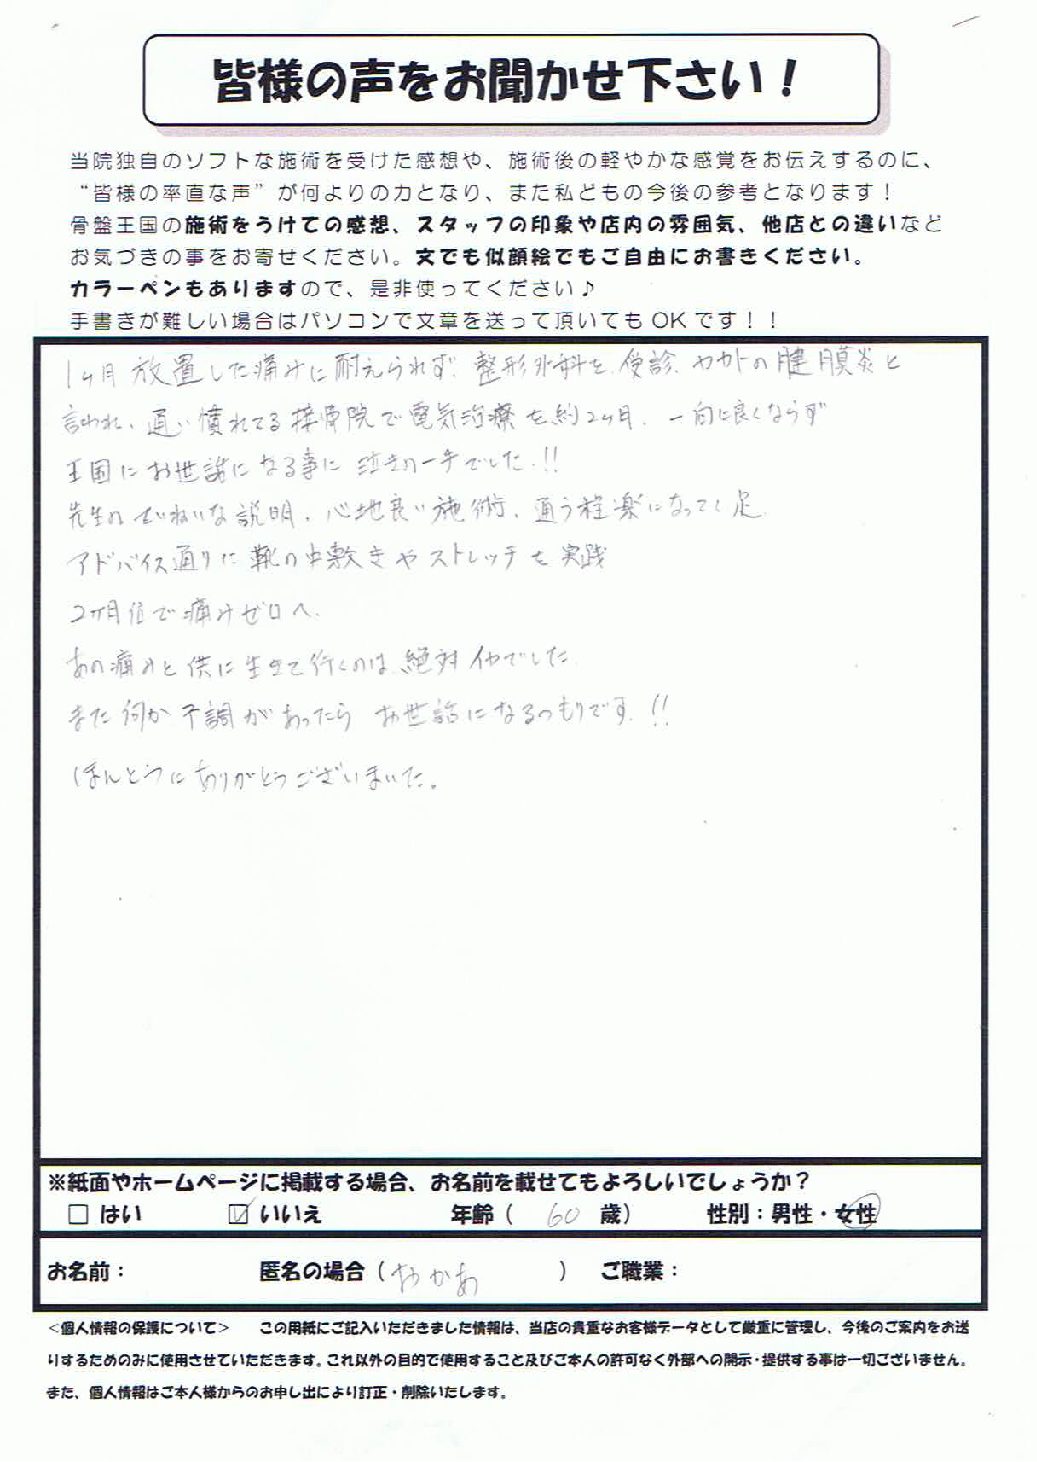 皆様の声をお聞かせ下さい！
当院独自のソフトな施術を受けた感想や、施術後の軽やかな感覚をお伝えするのに、
“皆様の率直な声”が何よりの力となり、また私どもの今後の参考となります！
骨盤王国の施術をうけての感想、スタッフの印象や店内の雰囲気、他店との違いなど
お気づきの事をお寄せください。文でも似顔絵でもご自由にお書きください。
カラーペンもありますので、是非使ってください♪
手書きが難しい場合はパソコンで文章を送って頂いてもOKです！！
1ヶ月放置した痛みに耐えられず、整形外科を受診、カカトの腱膜炎と
言われ、通い慣れてる接骨院で電気治療を約2ヶ月、一向に良くならず
王国にお世話になる事に 泣きの一手でした!!
先生のていねいな説明、心地良い施術、通う程楽になってく足
アドバイス通りに靴の中敷きやストレッチを実践
2ヶ月位で痛みゼロへ
あの痛みと供に生きて行くのは絶対イヤでした
また何か不調があったら お世話になるつもりです!!
ほんとうにありがとうございました。
※紙面やホームページに掲載する場合、お名前を載せてもよろしいでしょうか？
□ はい ☑ いいえ 年齢（ 60 歳） 性別：男性・女性
お名前： 匿名の場合（ おかあ ） ご職業：
＜個人情報の保護について＞ この用紙にご記入いただきました情報は、当店の貴重なお客様データとして厳重に管理し、今後のご案内をお送
りするためのみに使用させていただきます。これ以外の目的で使用すること及びご本人の許可なく外部への開示・提供する事は一切ございません。
また、個人情報はご本人様からのお申し出により訂正・削除いたします。